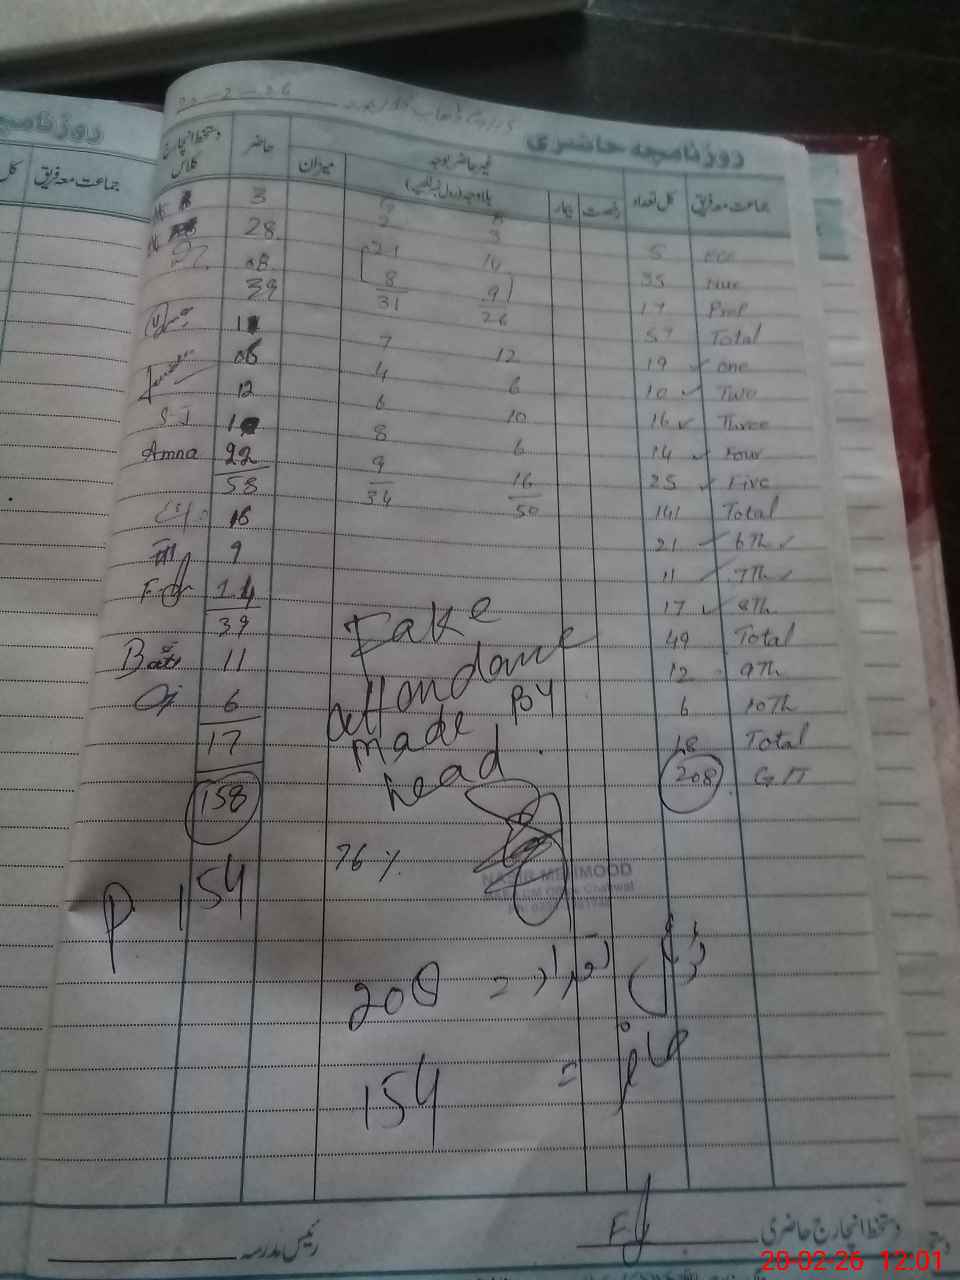 روزنامچہ
جماعت معہ فریق
کل
20-2-26
روزنامچہ حاضری
دستخط انچارج کلاس حاضر میزان غیر حاضر بوجہ کل تعداد جماعت معہ فریق
بلاوجہ (رول نمبر لکھیں) بیمار رخصت
3 5
28 35 Nur
08 21 14 17 Prep
39 8 9 57 Total
31 26
7 12 19 one
06 4 6 10 Two
12 6 10 16 Three
S.J 8 6 14 Four
Amna 22 9 16 25 Five
58 34 50 141 Total
16 21 6Th
9 11 7Th
14 17 8Th
39 49 Total
11 12 9Th
6 6 10Th
17 18 Total
158 208 G.T
Fake
attendance
made By
head.
76 %
NASIR MEHMOOD
P 154
کل تعداد = 208
حاضر = 154
دستخط انچارج حاضری
رئیس مدرسہ
20-02-26 12:01